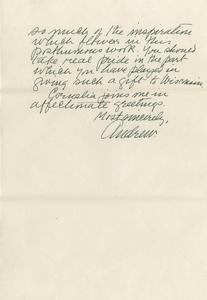 so much of the inspiration
which flowers in this
posthumous work. You should
take real pride in the part
which you have played in
giving such a gift to Wisconsin.
Cornelia joins me in
affectionate greetings.
Most sincerely,
Andrew